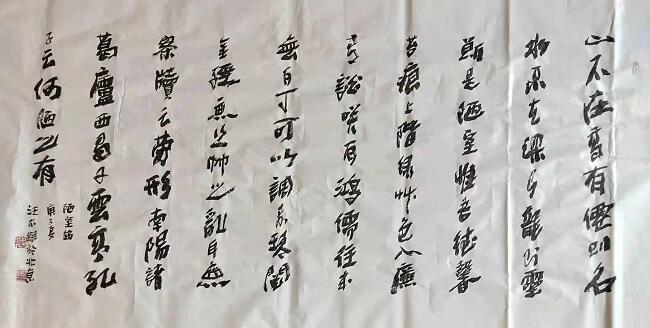 山不在高有僊則名
水不在深有龍則靈
斯是陋室惟吾德馨
苔痕上階绿艸色入簾
青談笑有鴻儒往来
無白丁可以調素琴閲
金經無丝竹之亂耳無
案牘之勞形南陽諸
葛廬西蜀子雲亭孔
子云何陋之有
陋室銘
庚子夏
汪於北京